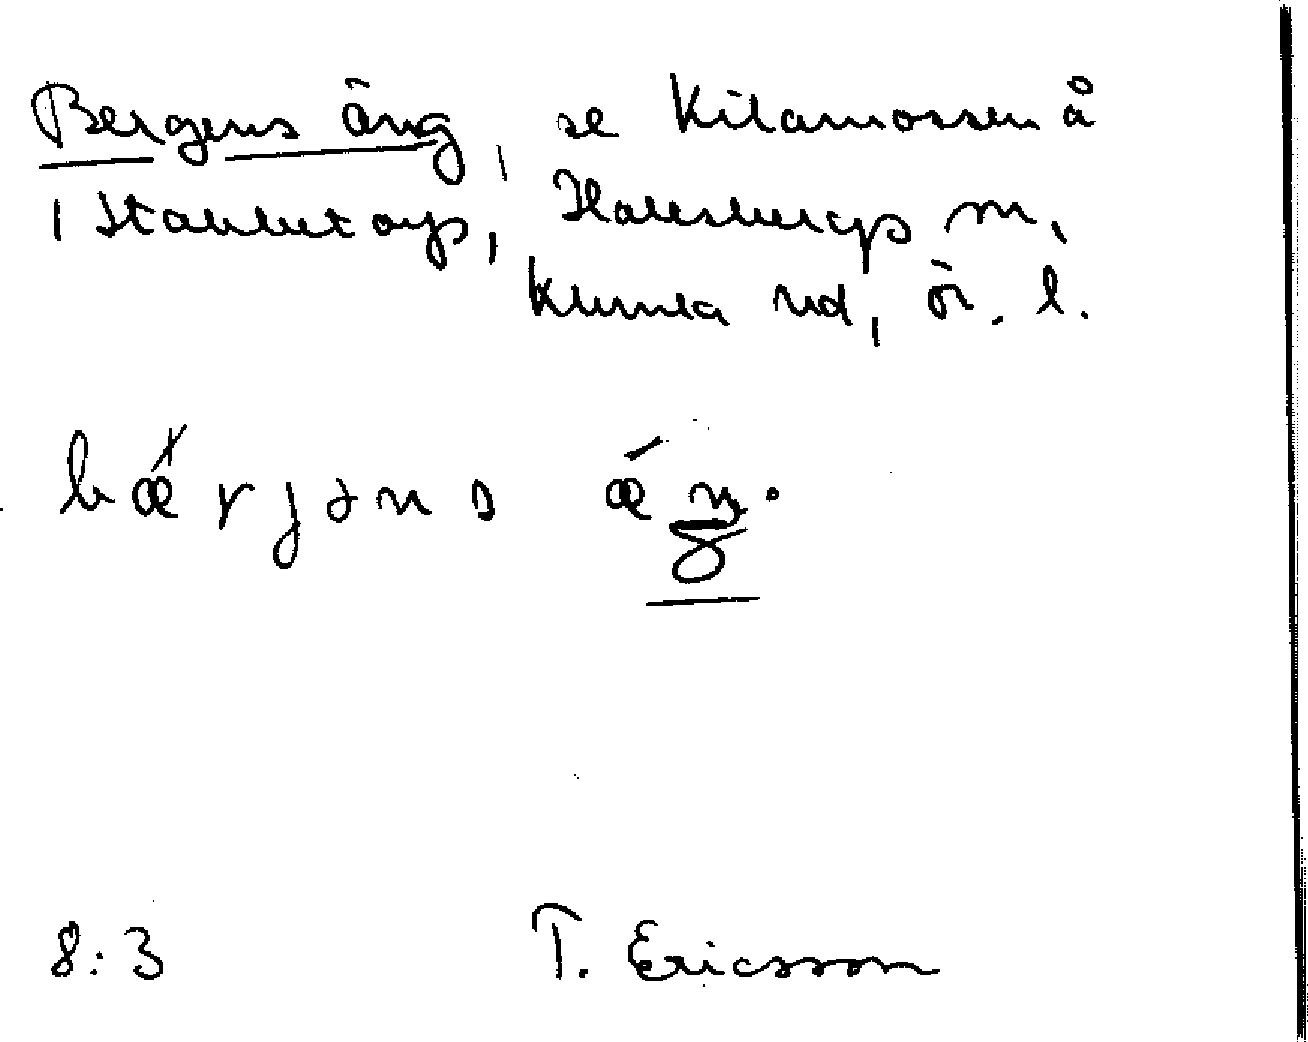 Bergens äng, se Kilamossen å
i Stabbetorp, Hallsbergs sn,
Kumla hd, ör. l.
bǽrjəns ǽŋ.
8:3 T. Ericsson